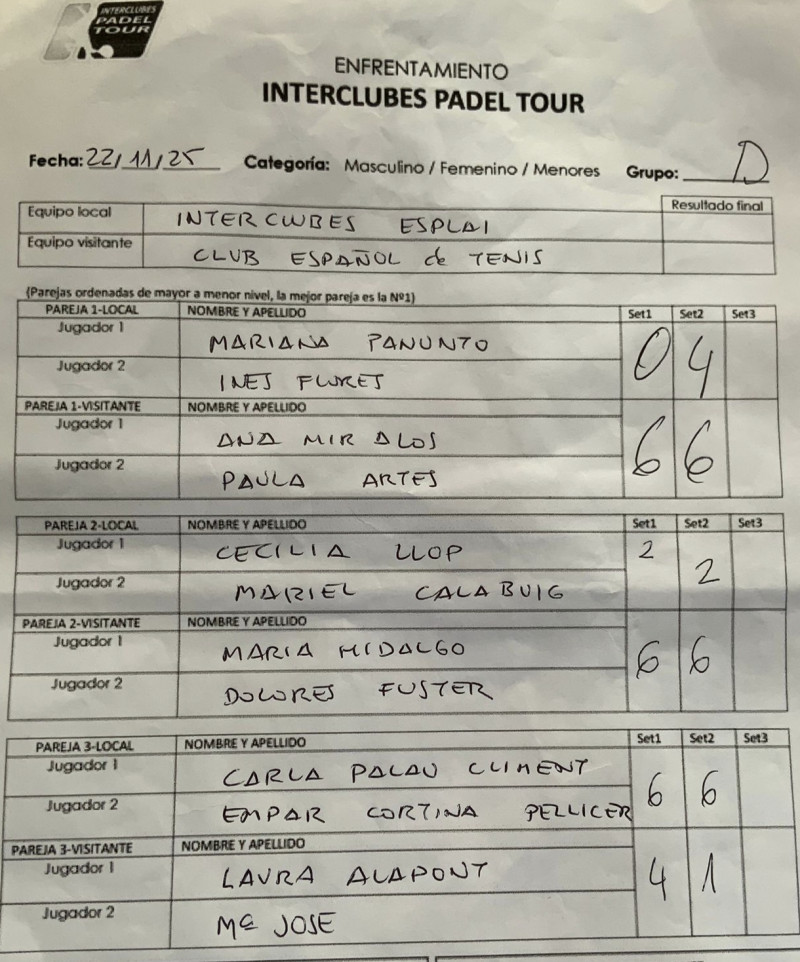 INTERCLUBES
PADEL
TOUR
ENFRENTAMIENTO
INTERCLUBES PADEL TOUR
Fecha: 22/11/25 Categoría: Masculino / Femenino / Menores Grupo: D
Resultado final
Equipo local INTERCLUBES ESPLAI
Equipo visitante CLUB ESPAÑOL de TENIS
(Parejas ordenadas de mayor a menor nivel, la mejor pareja es la Nº1)
PAREJA 1-LOCAL NOMBRE Y APELLIDO Set1 Set2 Set3
Jugador 1 MARIANA PANUNTO 0 4
Jugador 2 INES FLORES
PAREJA 1-VISITANTE NOMBRE Y APELLIDO
Jugador 1 ANA MIRALOS 6 6
Jugador 2 PAULA ARTES
PAREJA 2-LOCAL NOMBRE Y APELLIDO Set1 Set2 Set3
Jugador 1 CECILIA LLOP 2 2
Jugador 2 MARIEL CALABUIG
PAREJA 2-VISITANTE NOMBRE Y APELLIDO
Jugador 1 MARIA HIDALGO 6 6
Jugador 2 DOLORES FUSTER
PAREJA 3-LOCAL NOMBRE Y APELLIDO Set1 Set2 Set3
Jugador 1 CARLA PALAU CLIMENT 6 6
Jugador 2 EMPAR CORTINA PELLICER
PAREJA 3-VISITANTE NOMBRE Y APELLIDO
Jugador 1 LAURA ALAPONT 4 1
Jugador 2 Mª JOSE